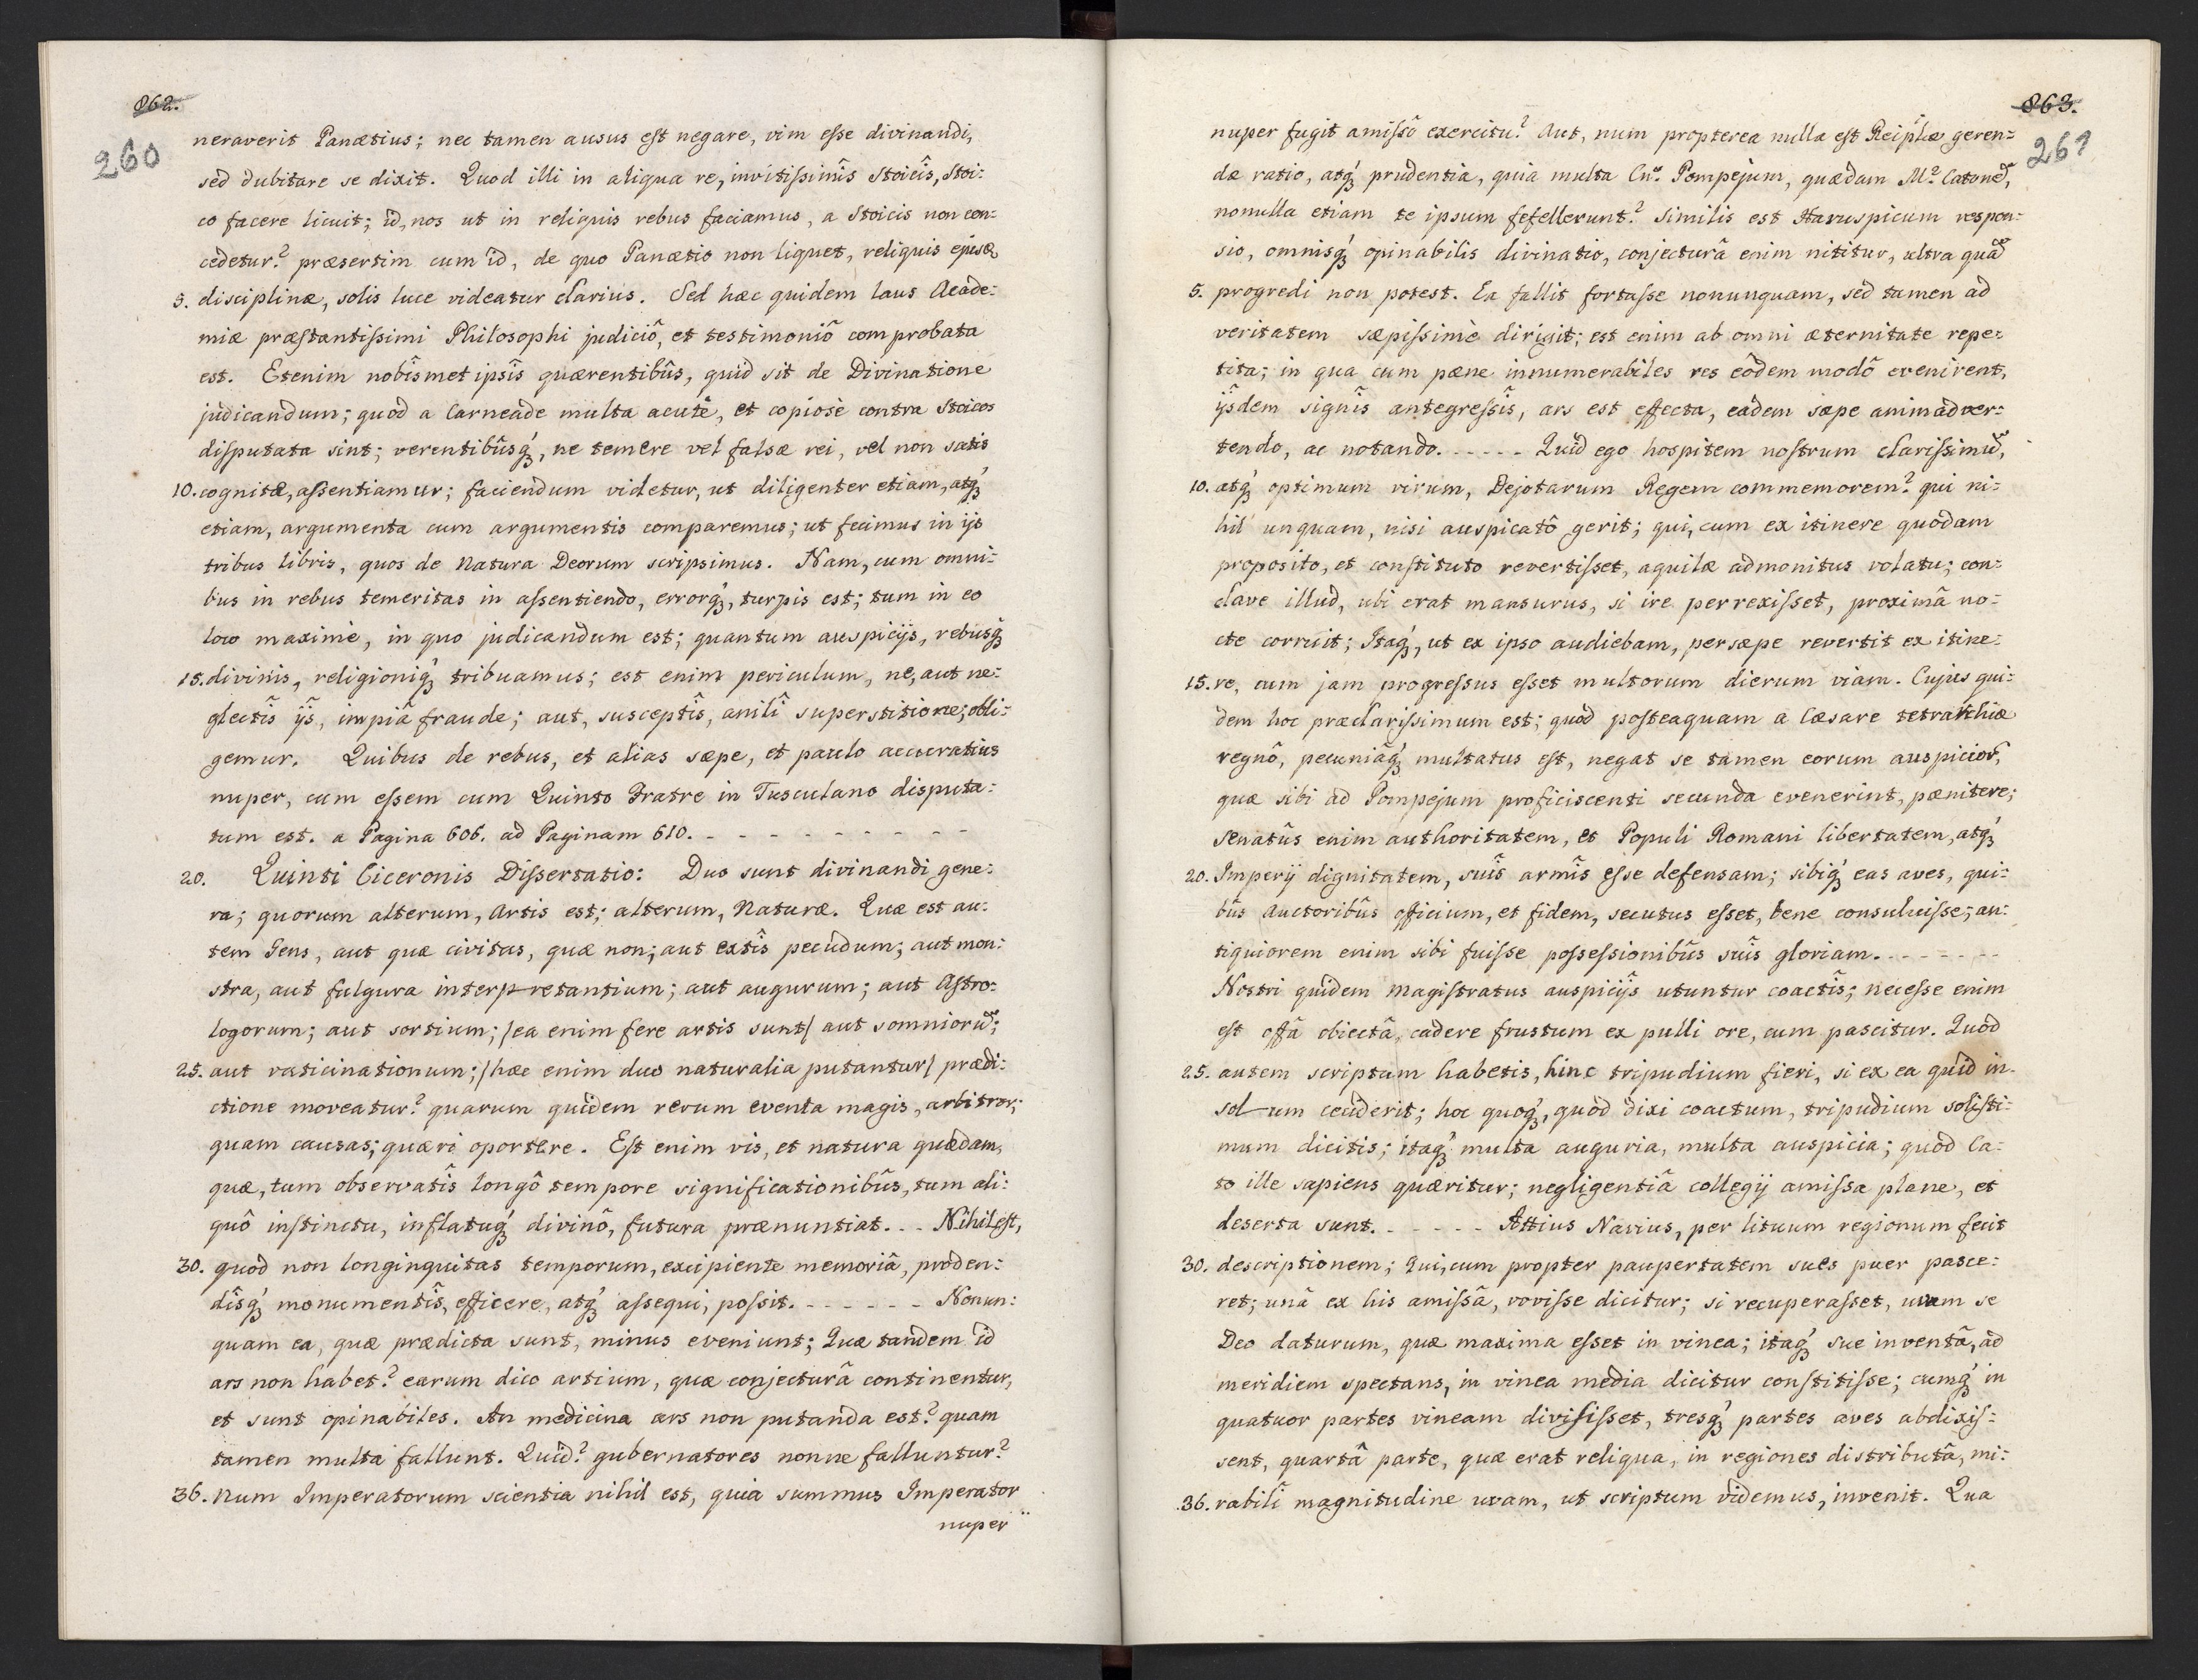 862.
260
neraverit Panætius; nec tamen ausus est negare, vim esse divinandi,
sed dubitare se dixit. Quod illi in aliqua re, invitissimîs Stoicîs, Stoi:
co facere licuit; id, nos ut in reliquis rebus faciamus, a Stoicis non con:
cedetur? præsertim cum id, de quo Panætio non liquet, reliquis ejusd
5. disciplinæ, solis luce videatur clarius. Sed hæc quidem laus Acade:
miæ præstantissimi Philosophi judiciô, et testimoniô comprobata
est. Etenim nobîsmet ipsîs quærentibûs, quid sit de Divinatione
judicandum; quod a Carneade multa acutè, et copiosè contra Stoicos
disputata sint; verentibûsq́, ne temere vel falsæ rei, vel non satis
10. cognitæ, assentiamur; faciendum videtur, ut diligenter etiam, atq́
etiam, argumenta cum argumentis comparemus; ut fecimus in ijs
tribus libris, quos de Natura Deorum scripsimus. Nam, cum omni:
bus in rebus temeritas in assentiendo, errorq́, turpis est; tum in eo
loco maximè, in quo judicandum est; quantum auspicijs, rebusq́
15. divinis, religioniq́ tribuamus; est enim periculum, ne, aut ne:
glectîs ijs, impiâ fraude; aut, susceptîs, anilî superstitione; obli:
gemur. Quibus de rebus, et alias sæpe, et paulo accuratius
nuper, cum essem cum Quinto Fratre in Tusculano disputa:
tum est. a Pagina 606. ad Paginam 610. - - - - - - - - -
20. Quinti Ciceronis Dissertatio: Duo sunt divinandi gene:
ra; quorum alterum, Artis est; alterum, Naturæ. Quæ est au:
tem Gens, aut quæ civitas, quæ non; aut extîs pecudum; aut mon:
stra, aut fulgura interpretantium; aut augurum; aut Astro:
logorum; aut sortium; /ea enim fere artis sunt/ aut somnioru̅;
25. aut vaticinationum; /hæc enim duo naturalia putantur/ prædi:
ctione moveatur? quarum quidem rerum eventa magis, arbitror;
quam causas; quæri oportere. Est enim vis, et natura quædam,
quæ, tum observatîs longô tempore significationibûs, tum ali:
quô instinctu, inflatuq́ divinô, futura prænuntiat. - - Nihil est,
30. quod non longinquitas temporum, excipiente memoriâ, proden:
dîsq́ monumentîs, efficere, atq́ assequi, possit. - - - - - - Nonun:
quam ea, quæ prædicta sunt, minus eveniunt; Quæ tandem id
ars non habet? earum dico artium, quæ conjecturâ continentur,
et sunt opinabiles. An medicina ars non putanda est? quam
tamen multa fallunt. Quid? gubernatores nonne falluntur?
36. Num Imperatorum scientia nihil est, quia summus Imperator
nuper
863.
261
nuper fugit amissô exercitu? Aut, num propterea nulla est Reip̅læ geren:
dæ ratio, atq́ prudentia, quia multa Cn. Pompejum, quædam M. Catone̅,
nonulla etiam te ipsum fefellerunt? Similis est Haruspicum respon:
sio, omnisq́ opinabilis divinatio, conjecturâ enim nititur, ultra qua̅
5. progredi non potest. Ea fallit fortasse nonunquam, sed tamen ad
veritatem sæpissimè dirigit; est enim ab omni æternitate repe:
tita; in qua cum pæne innumerabiles res eôdem modô evenirent,
ijsdem signîs antegressîs, ars est effecta, eadem sæpe animadver:
tendo, ac notando. - - - - - Quid ego hospitem nostrum clarissimu̅,
10. atq́ optimum virum, Dejotarum Regem commemorem? qui ni:
hil unquam, nisi auspicatô gerit; qui, cum ex itinere quodam
proposito, et constituto revertisset, aquilæ admonitus volatu; con:
clave illud, ubi erat mansurus, si ire perrexisset, proximâ no:
cte corruit; Itaq́, ut ex ipso audiebam, persæpe revertit ex itine:
15. re, cum jam progressus esset multorum dierum viam. Cujus qui:
dem hoc præclarissimum est; quod posteaquam a Cæsare tetrarchiæ
regnô, pecuniâq́ multatus est, negat se tamen eorum auspicior̅,
quæ sibi ad Pompejum proficiscenti secunda evenerint, pænitere;
Senatûs enim authoritatem, et Populi Romani libertatem, atq́
20. Imperij dignitatem, suîs armîs esse defensam; sibiq́ eas aves, qui:
bûs Auctoribûs officium, et fidem, secutus esset, bene consuluisse; an:
tiquiorem enim sibi fuisse possessionibûs suîs gloriam. - - - - - - -
Nostri quidem Magistratus auspicijs utuntur coactîs; necesse enim
est offâ obiectâ, cadere frustum ex pulli ore, cum pascitur. Quod
25. autem scriptum habetis, hinc tripudium fieri, si ex ea quid in
solum ceciderit; hoc quoq́, quod dixi coactum, tripudium solisti:
mum dicitis; itaq́ multa auguria, multa auspicia; quod Ca:
to ille sapiens quæritur; negligentiâ collegij amissa plane, et
deserta sunt. - - - - - Attius Navius, per lituum regionum fecit
30. descriptionem; Qui, cum propter paupertatem sues puer pasce:
ret; unâ ex his amissâ, vovisse dicitur; si recuperasset, uvam se
Deo daturum, quæ maxima esset in vinea; itaq́ sue inventâ, ad
meridiem spectans, in vinea media dicitur constitisse; cumq́ in
quatuor partes vineam divisisset, tresq́ partes aves abdixis:
sent, quartâ parte, quæ erat reliqua, in regiones distributâ, mi:
36. rabilî magnitudine uvam, ut scriptum videmus, invenit. Qua